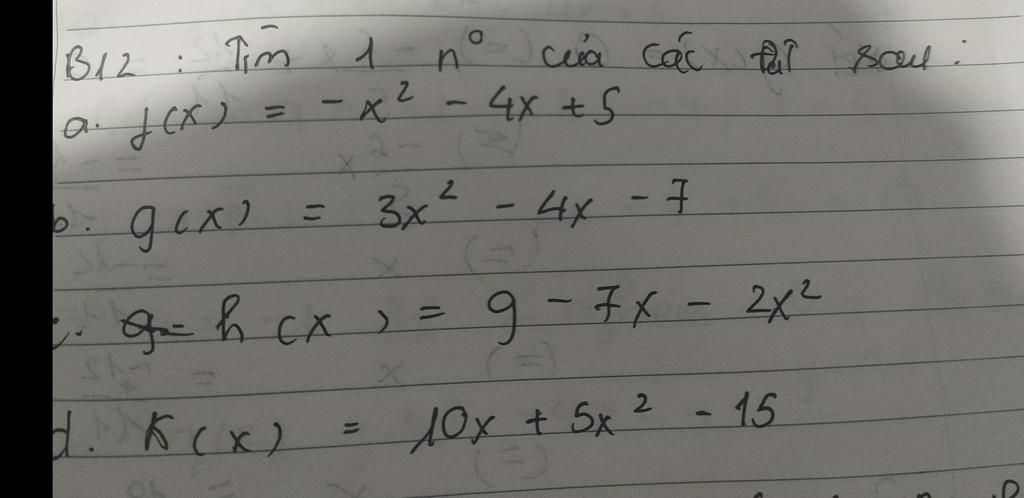 B12 : Tìm 1 n° của các đt sau :
a. f(x) = - x² - 4x + 5
b. g(x) = 3x² - 4x - 7
c. h(x) = 9 - 7x - 2x²
d. K(x) = 10x + 5x² - 15